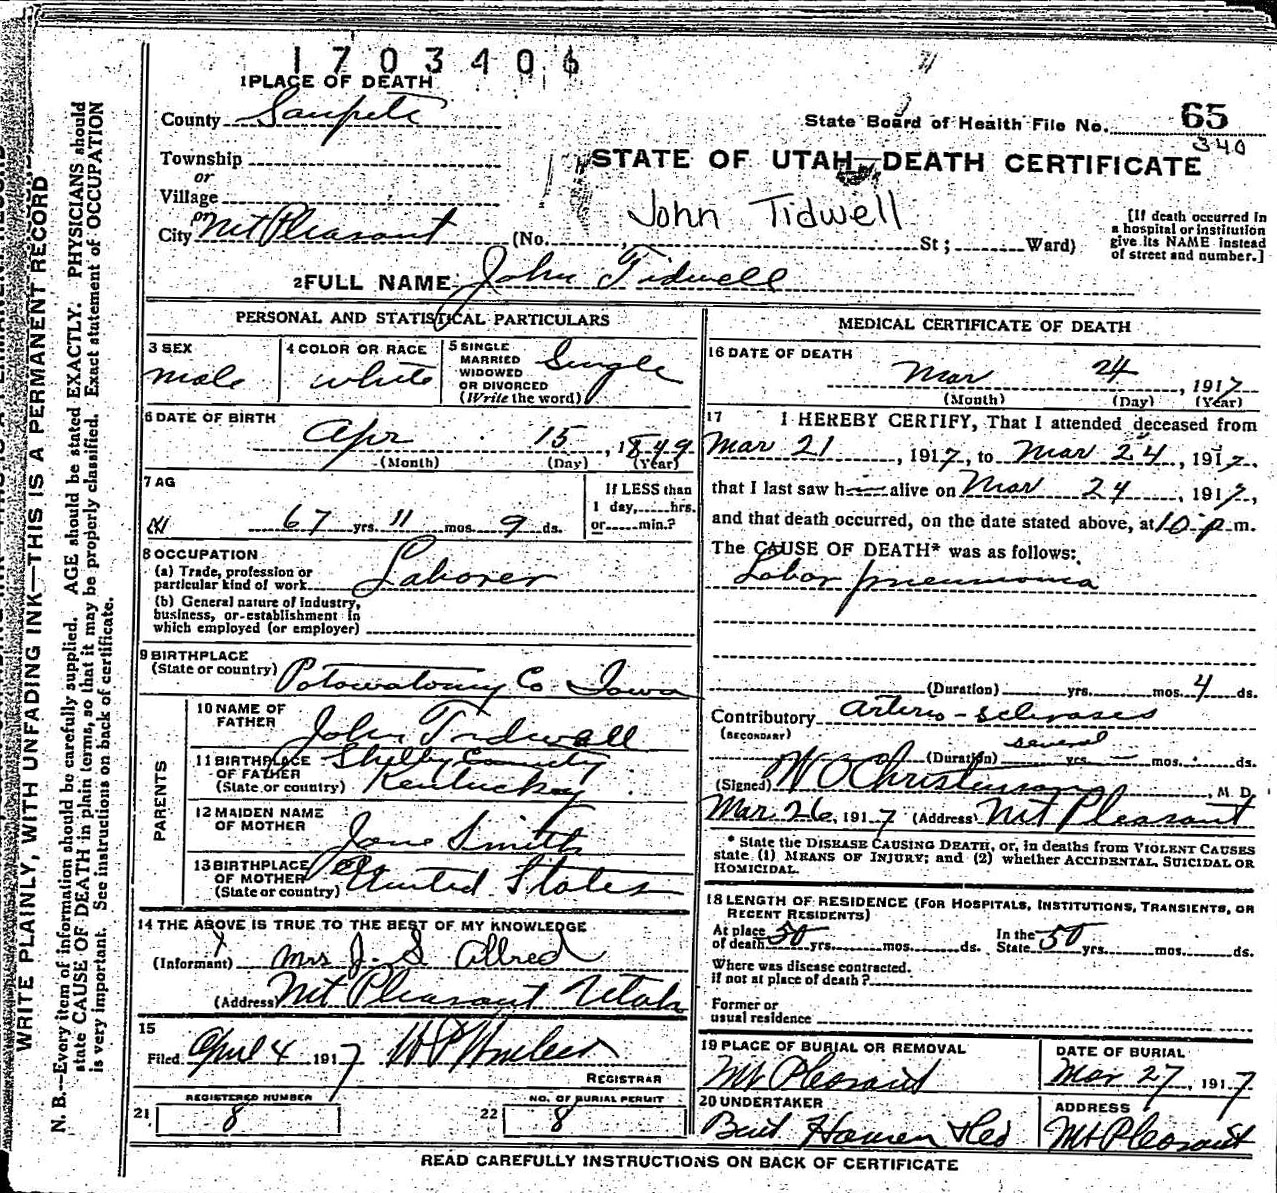 1703406
1 PLACE OF DEATH
County Sanpete
State Board of Health File No. 65
340
Township
or
Village
or
City Mt Pleasant
STATE OF UTAH—DEATH CERTIFICATE
John Tidwell
(No. , St; Ward)
[If death occurred in
a hospital or institution
give its NAME instead
of street and number.]
2 FULL NAME John Tidwell
PERSONAL AND STATISTICAL PARTICULARS
3 SEX
male
4 COLOR OR RACE
white
5 SINGLE
MARRIED
WIDOWED
OR DIVORCED
(Write the word)
Single
6 DATE OF BIRTH
Apr 15, 1849
(Month) (Day) (Year)
7 AG
67 yrs. 11 mos. 9 ds.
If LESS than
1 day, hrs.
or min.?
8 OCCUPATION
(a) Trade, profession or
particular kind of work Laborer
(b) General nature of industry,
business, or establishment in
which employed (or employer)
9 BIRTHPLACE
(State or country) Potowatomy Co Iowa
PARENTS
10 NAME OF
FATHER John Tidwell
11 BIRTHPLACE
OF FATHER
(State or country)
Shelby County
Kentuckey
12 MAIDEN NAME
OF MOTHER Jane Smith
13 BIRTHPLACE
OF MOTHER
(State or country) United States
14 THE ABOVE IS TRUE TO THE BEST OF MY KNOWLEDGE
(Informant) Mrs J. S. Allred
(Address) Mt Pleasant Utah
15
Filed April 4 1917
REGISTRAR
21 REGISTERED NUMBER
8
22 NO. OF BURIAL PERMIT
8
MEDICAL CERTIFICATE OF DEATH
16 DATE OF DEATH
Mar 24, 1917
(Month) (Day) (Year)
17 I HEREBY CERTIFY, That I attended deceased from
Mar 21, 1917, to Mar 24, 1917.
that I last saw h alive on Mar 24, 1917,
and that death occurred, on the date stated above, at 10 p m.
The CAUSE OF DEATH* was as follows:
Lobar pneumonia
(Duration) yrs. mos. 4 ds.
Contributory Arterio-sclerosis
(SECONDARY)
several
(Duration) yrs. mos. ds.
(Signed) W O Christensen, M. D.
Mar 26, 1917 (Address) Mt Pleasant
* State the DISEASE CAUSING DEATH, or, in deaths from VIOLENT CAUSES
state (1) MEANS OF INJURY; and (2) whether ACCIDENTAL, SUICIDAL OR
HOMICIDAL.
18 LENGTH OF RESIDENCE (FOR HOSPITALS, INSTITUTIONS, TRANSIENTS, OR
RECENT RESIDENTS)
At place
of death 50 yrs. mos. ds.
In the
State 50 yrs. mos. ds.
Where was disease contracted.
if not at place of death?
Former or
usual residence
19 PLACE OF BURIAL OR REMOVAL
Mt Pleasant
DATE OF BURIAL
Mar 27, 1917.
20 UNDERTAKER
ADDRESS
Mt Pleasant
READ CAREFULLY INSTRUCTIONS ON BACK OF CERTIFICATE
WRITE PLAINLY, WITH UNFADING INK—THIS IS A PERMANENT RECORD
N. B.—Every item of information should be carefully supplied. AGE should be stated EXACTLY. PHYSICIANS should
state CAUSE OF DEATH in plain terms, so that it may be properly classified. Exact statement of OCCUPATION
is very important. See instructions on back of certificate.